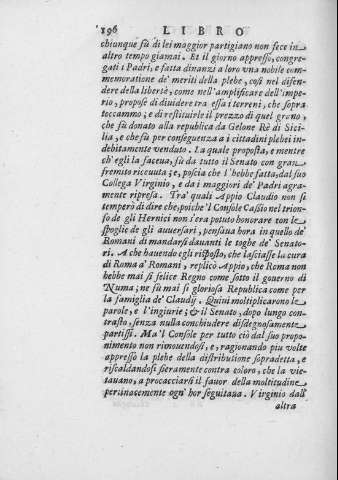 196 LIBRO
chiunque fù di lei maggior partigiano non fece in
altro tempo giamai. Et il giorno appresso, congre-
gati i Padri, e fatta dinanzi a loro vna nobile com-
memoratione de' meriti della plebe, così nel difen-
dere della libertà, come nell'amplificare dell'impe-
rio, propose di diuidere tra essa i terreni, che sopra
toccammo; e di restituirle il prezzo di quel grano,
che fù donato alla republica da Gelone Rè di Sici-
lia, e che fù per conseguenza a i cittadini plebei in-
debitamente venduto. La quale proposta, e mentre
ch'egli la faceua, fù da tutto il Senato con gran
fremito riceuuta; e, poscia che l'hebbe fatta, dal suo
Collega Virginio, e da i maggiori de' Padri agra-
mente ripresa. Tra' quali Appio Claudio non si
temperò di dire che; poiche'l Console Cassio nel trion-
fo de gli Hernici non s'era potuto honorare con le
spoglie de gli auuersari, pensaua hora in quello de'
Romani di mandarsi dauanti le toghe de' Senato-
ri. A che hauendo egli risposto, che lasciasse la cura
di Roma a' Romani, replicò Appio, che Roma non
hebbe mai sì felice Regno come sotto il gouerno di
Numa; ne fù mai sì gloriosa Republica come per
la famiglia de' Claudij. Quiui moltiplicarono le
parole, e l'ingiurie; & il Senato, dopo lungo con-
trasto, senza nulla conchiudere disdegnosamente
partissi. Ma'l Console per tutto ciò dal suo propo-
nimento non rimouendosi, e, ragionando piu volte
appresso la plebe della distributione sopradetta, e
riscaldandosi fieramente contra coloro, che la vie-
tauano, a procacciarsi il fauor della moltitudine
pertinacemente ogn' hor seguitaua. Virginio dall'
altra